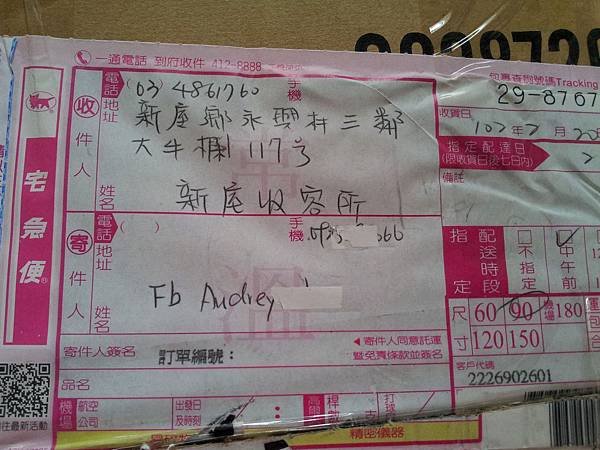 一通電話 到府收件 412-8888
包裹查詢號碼Tracking
29-8767
收貨日
102年7月20日
指定配達日
(限收貨日後七日內)
備註
宅急便
收件人
電話
地址
姓名
手機
(03) 4861760
新屋鄉永興村三鄰
大牛欄 117号
新屋收容所
寄件人
電話
地址
姓名
( )
手機
Fb Audrey
指定
配送時段
不指定
中午前
尺寸
60 90 機場 180
120 150
寄件人簽名
訂單編號：
◀寄件人同意託運
暨免責條款並簽名
客戶代碼
2226902601
品名
機場
航空公司
出發日及時刻
精密儀器